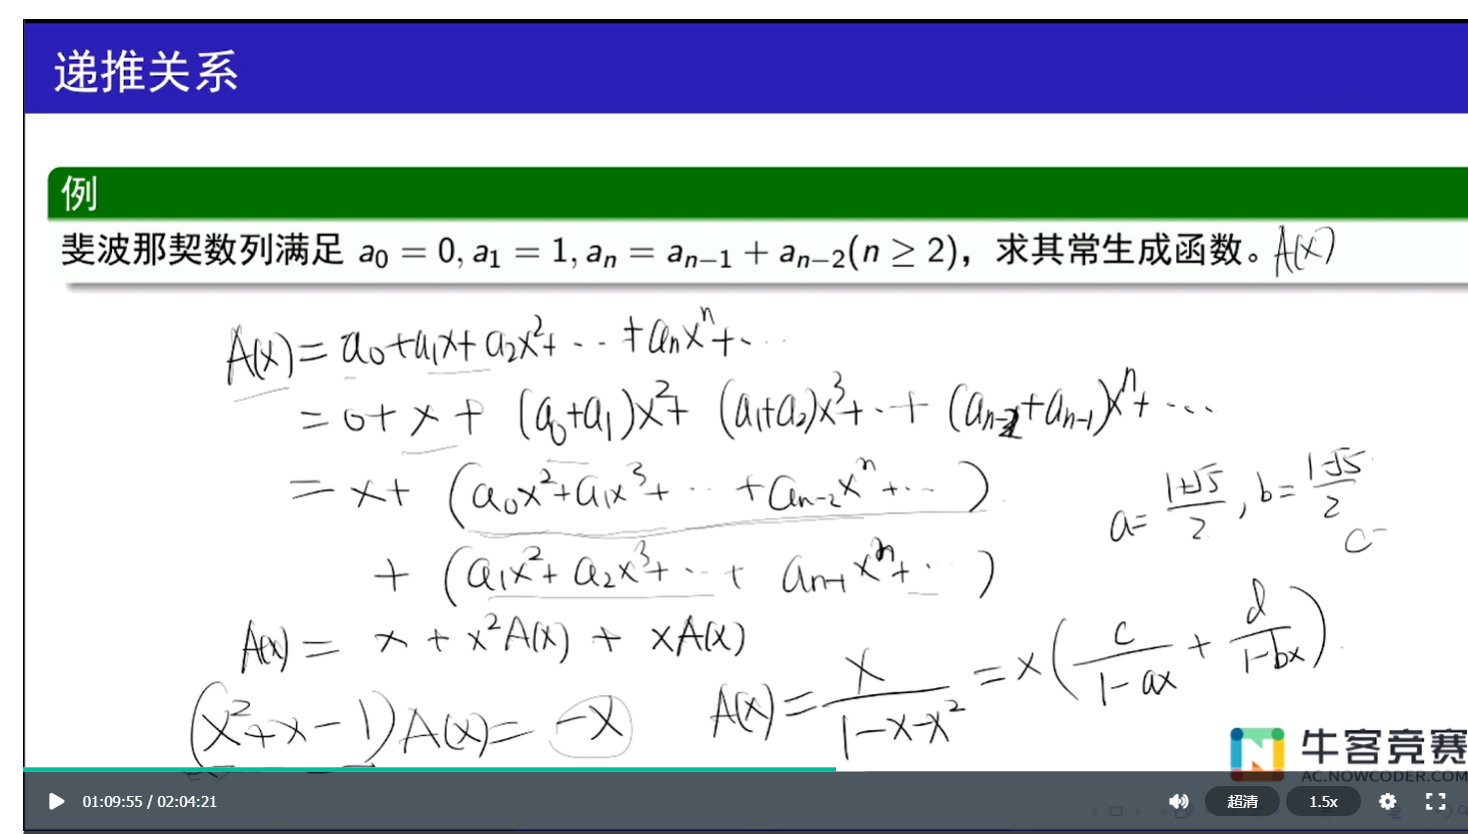 递推关系
例
斐波那契数列满足 a₀ = 0, a₁ = 1, aₙ = aₙ₋₁ + aₙ₋₂(n ≥ 2)，求其常生成函数。A(x)
A(x) = a₀+a₁x+a₂x²+ ... +aₙxⁿ+...
= 0+ x + (a₀+a₁)x²+ (a₁+a₂)x³+...+ (aₙ₋₂+aₙ₋₁)xⁿ+ ...
= x+ (a₀x²+a₁x³+ ... +aₙ₋₂xⁿ+...)
a= (1+√5)/2, b= (1-√5)/2
c-
+ (a₁x²+ a₂x³+...+ aₙ₋₁xⁿ+...)
A(x) = x + x²A(x) + xA(x)
(x²+x-1)A(x)= -x
A(x)= x/(1-x-x²) = x(c/(1-ax) + d/(1-bx))
牛客竞赛
AC.NOWCODER.COM
01:09:55 / 02:04:21
超清
1.5x